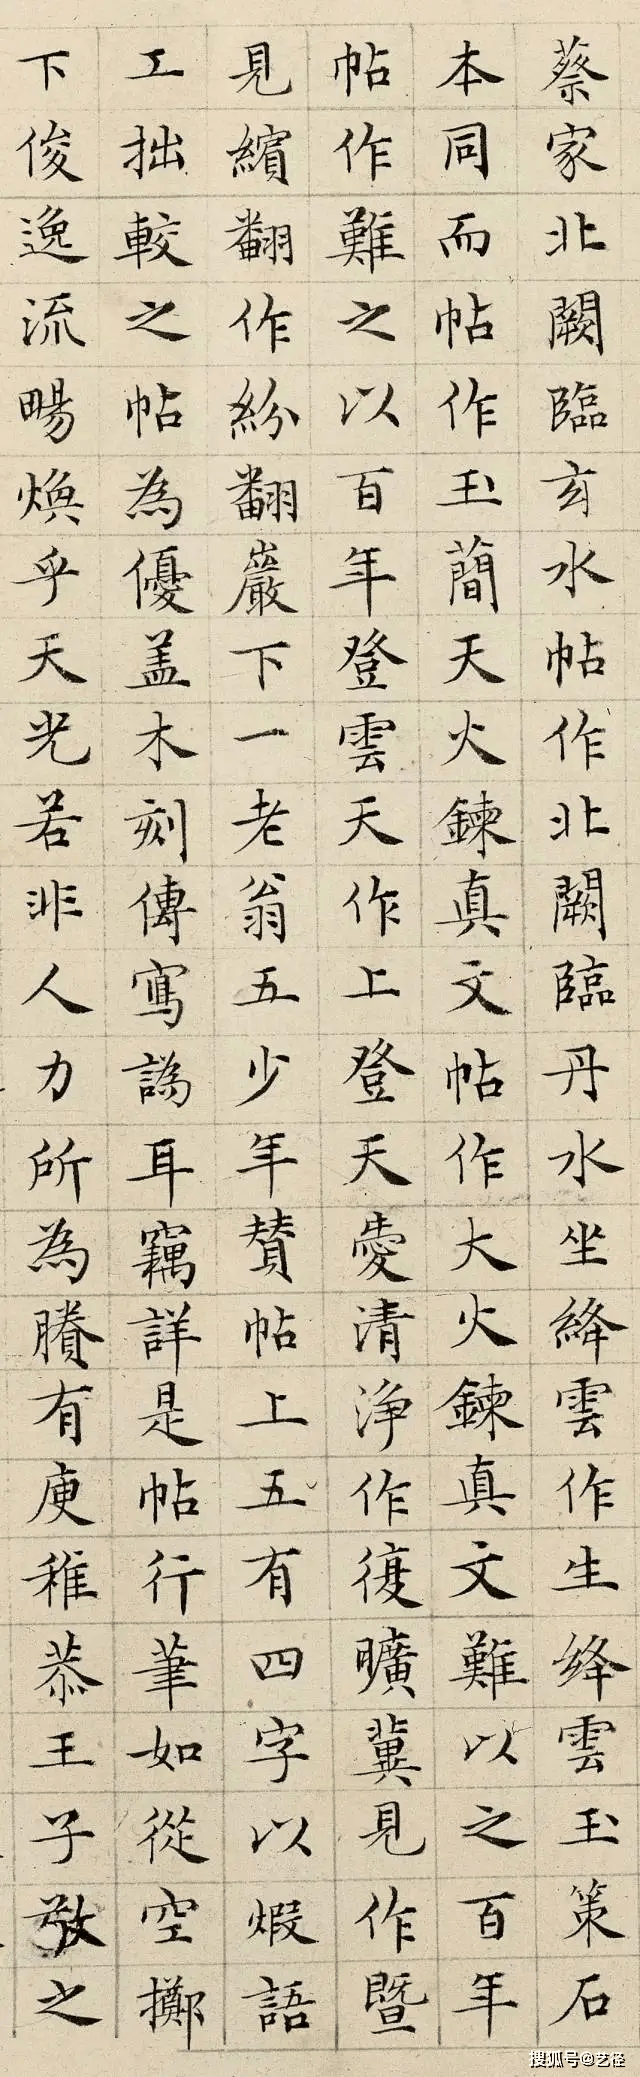 蔡家北闕臨玄水帖作北闕臨丹水坐絳雲作生絳雲玉策石
本同而帖作玉蕳天火鍊真文帖作大火鍊真文難以之百年
帖作難之以百年登雲天作上登天愛清淨作復曠冀見作暨
見繽翻作紛翻巖下一老翁五少年賛帖上五有四字以煆語
工拙較之帖為優盖木刻傳寫譌耳竊詳是帖行筆如從空擲
下俊逸流暢煥乎天光若非人力所為賸有庾稚恭王子敬之
搜狐号@艺径